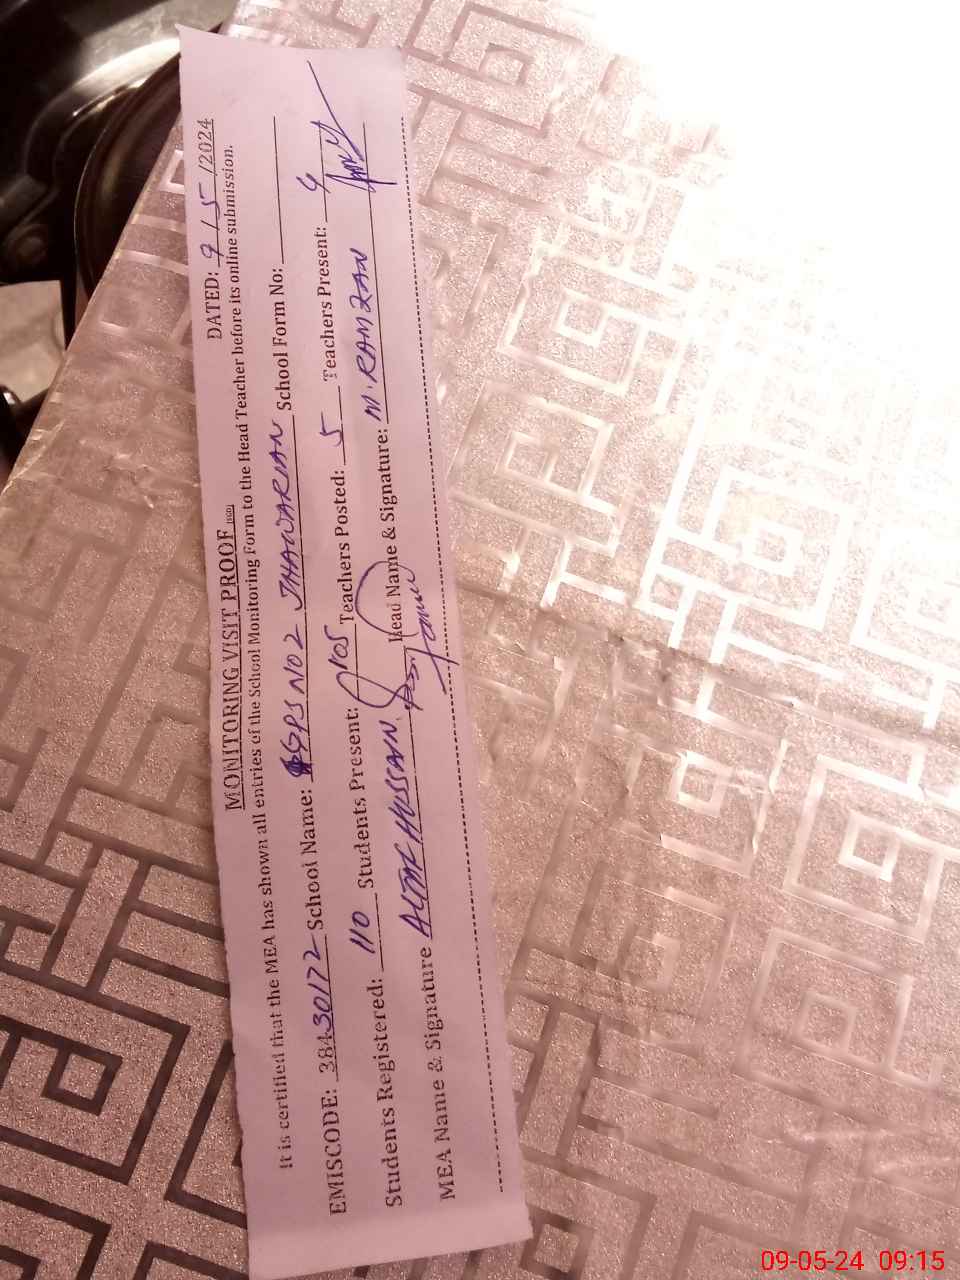 MONITORING VISIT PROOF (SGD) DATED: 9/5/2024
It is certified that the MEA has shown all entries of the School Monitoring Form to the Head Teacher before its online submission.
EMISCODE: 38430172 School Name: GGPS NO 2 JHAWARIAN School Form No:
Students Registered: 110 Students Present: 105 Teachers Posted: 5 Teachers Present: 4
MEA Name & Signature ALTAF HUSSAIN Head Name & Signature: M. RAMZAN
09-05-24 09:15